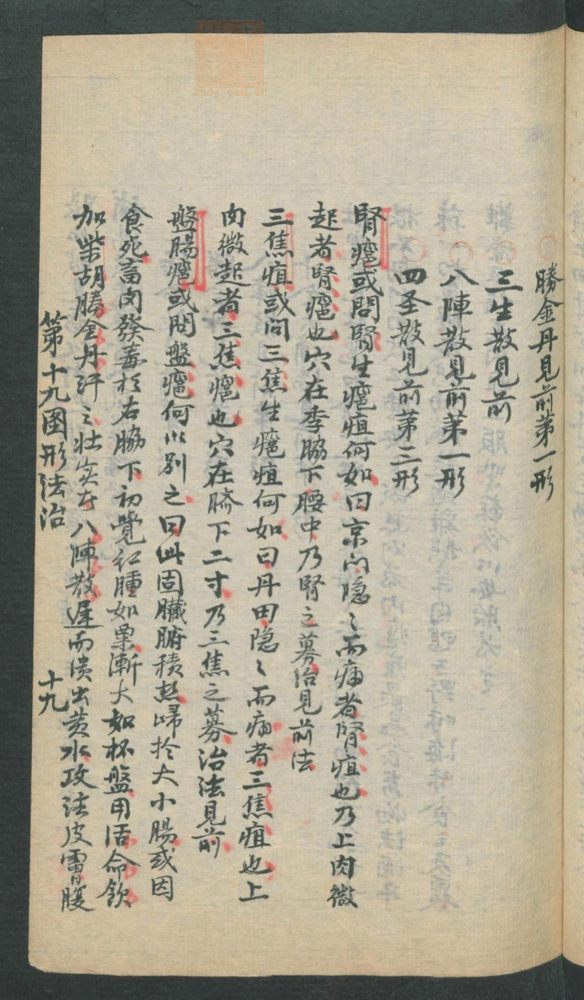 勝金丹見前第一形
三生散見前
八陣散見前第一形
四圣散見前第二形
腎癰或問腎生癰疽何如曰京门隐〻而痛者腎疽也乃上肉微
起者腎癰也穴在季脇下腰中乃腎之募治見前法
三焦疽或问三焦生癰疽何如曰丹田隐〻而痛者三焦疽也上
肉微起者三焦癰也穴在臍下二寸乃三焦之募治法見前
盤腸癰或問盤癰何以别之曰此固臟腑積热歸於大小腸或因
食死畜肉發毒於右脇下初覺红腫如栗漸大如杯盤用活命飲
加柴胡勝金丹汗之壮实者八陣散遲而潰出黄水攻法皮膚腹
第十九圖形法治
十九